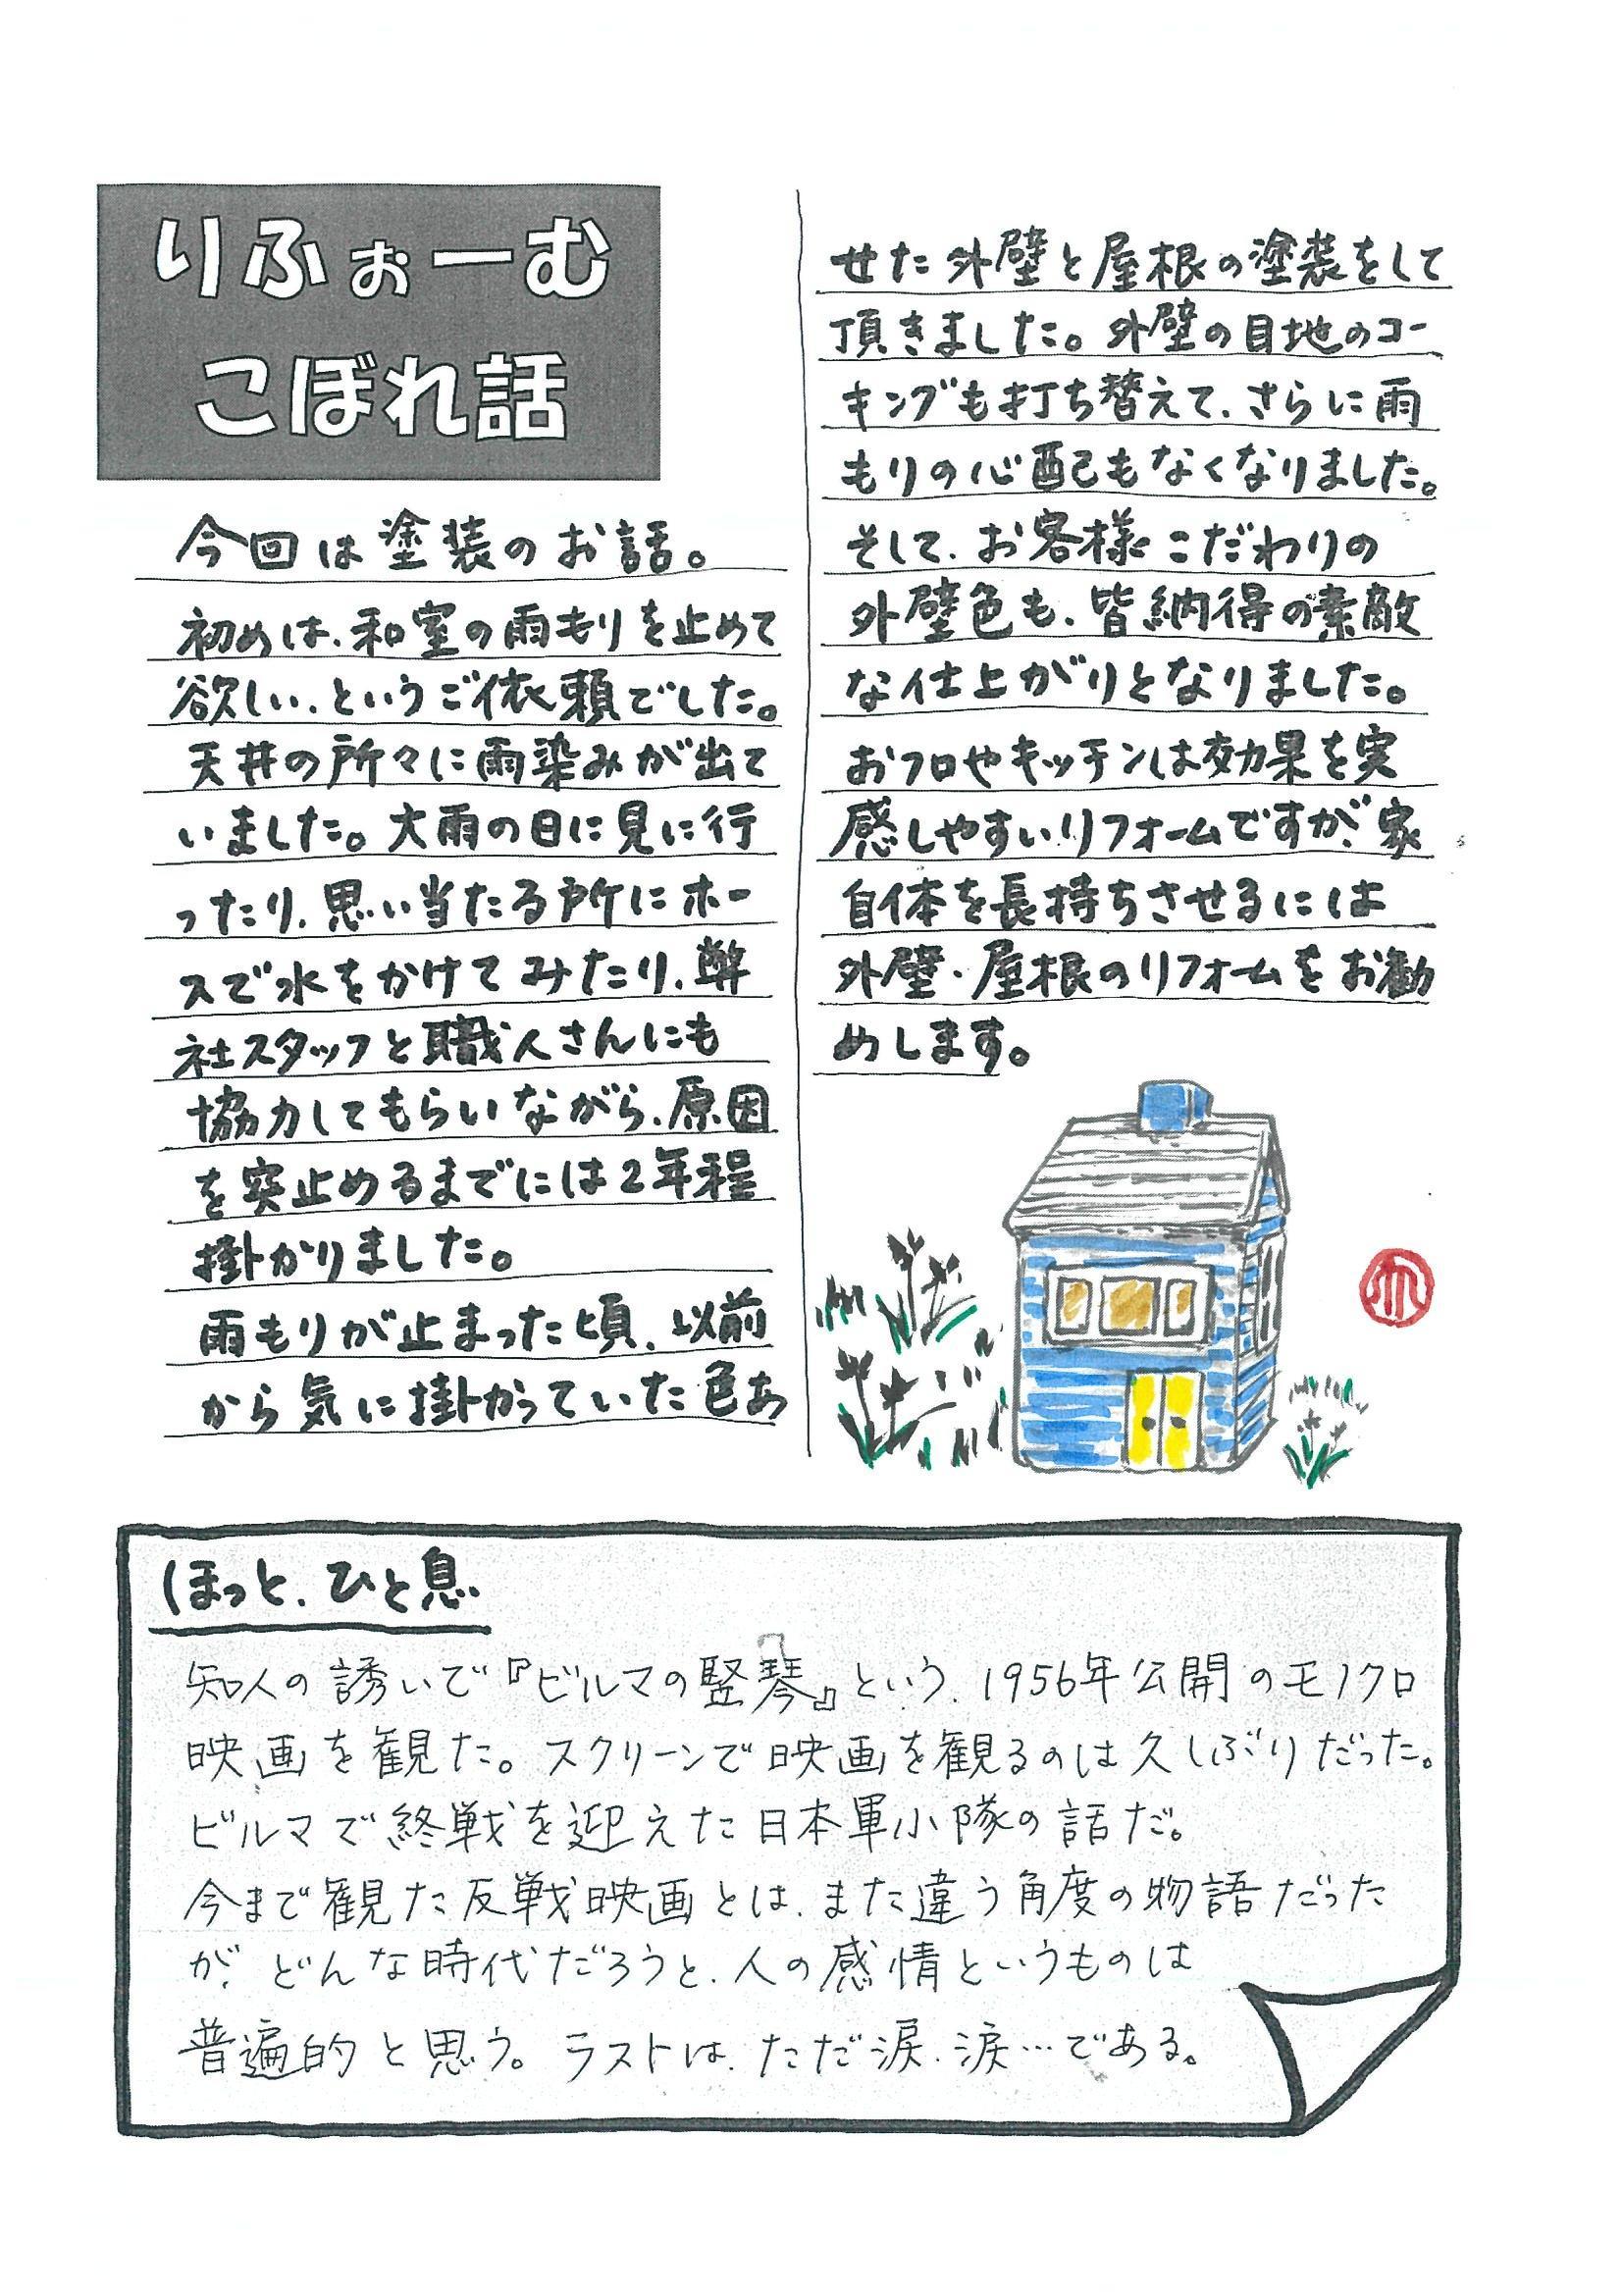 りふぉーむ
こぼれ話
今回は塗装のお話。
初めは、和室の雨もりを止めて
欲しい、というご依頼でした。
天井の所々に雨染みが出て
いました。大雨の日に見に行
ったり、思い当たる所にホー
スで水をかけてみたり、弊
社スタッフと職人さんにも
協力してもらいながら、原因
を突止めるまでには2年程
掛かりました。
雨もりが止まった頃、以前
から気に掛かっていた色あ
せた外壁と屋根の塗装をして
頂きました。外壁の目地のコー
キングも打ち替えて、さらに雨
もりの心配もなくなりました。
そして、お客様こだわりの
外壁色も、皆納得の素敵
な仕上がりとなりました。
おフロやキッチンは効果を実
感しやすいリフォームですが、家
自体を長持ちさせるには
外壁・屋根のリフォームをお勧
めします。
ほっと、ひと息
知人の誘いで『ビルマの竪琴』という、1956年公開のモノクロ
映画を観た。スクリーンで映画を観るのは久しぶりだった。
ビルマで終戦を迎えた日本軍小隊の話だ。
今まで観た反戦映画とは、また違う角度の物語だった
が、どんな時代だろうと、人の感情というものは
普遍的と思う。ラストは、ただ涙、涙…である。